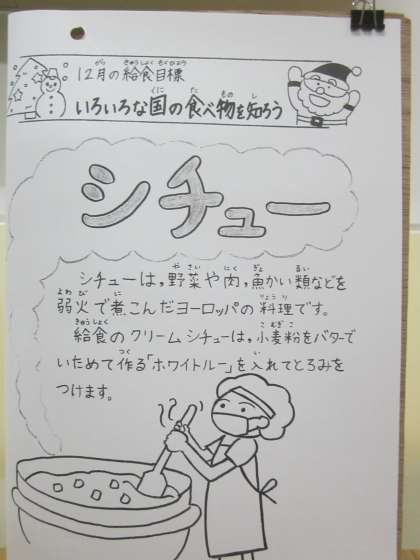 12月の給食目標
いろいろな国の食べ物を知ろう
シチュー
シチューは，野菜や肉，魚かい類などを
弱火で煮こんだヨーロッパの料理です。
給食のクリームシチューは，小麦粉をバターで
いためて作る「ホワイトルー」を入れてとろみを
つけます。